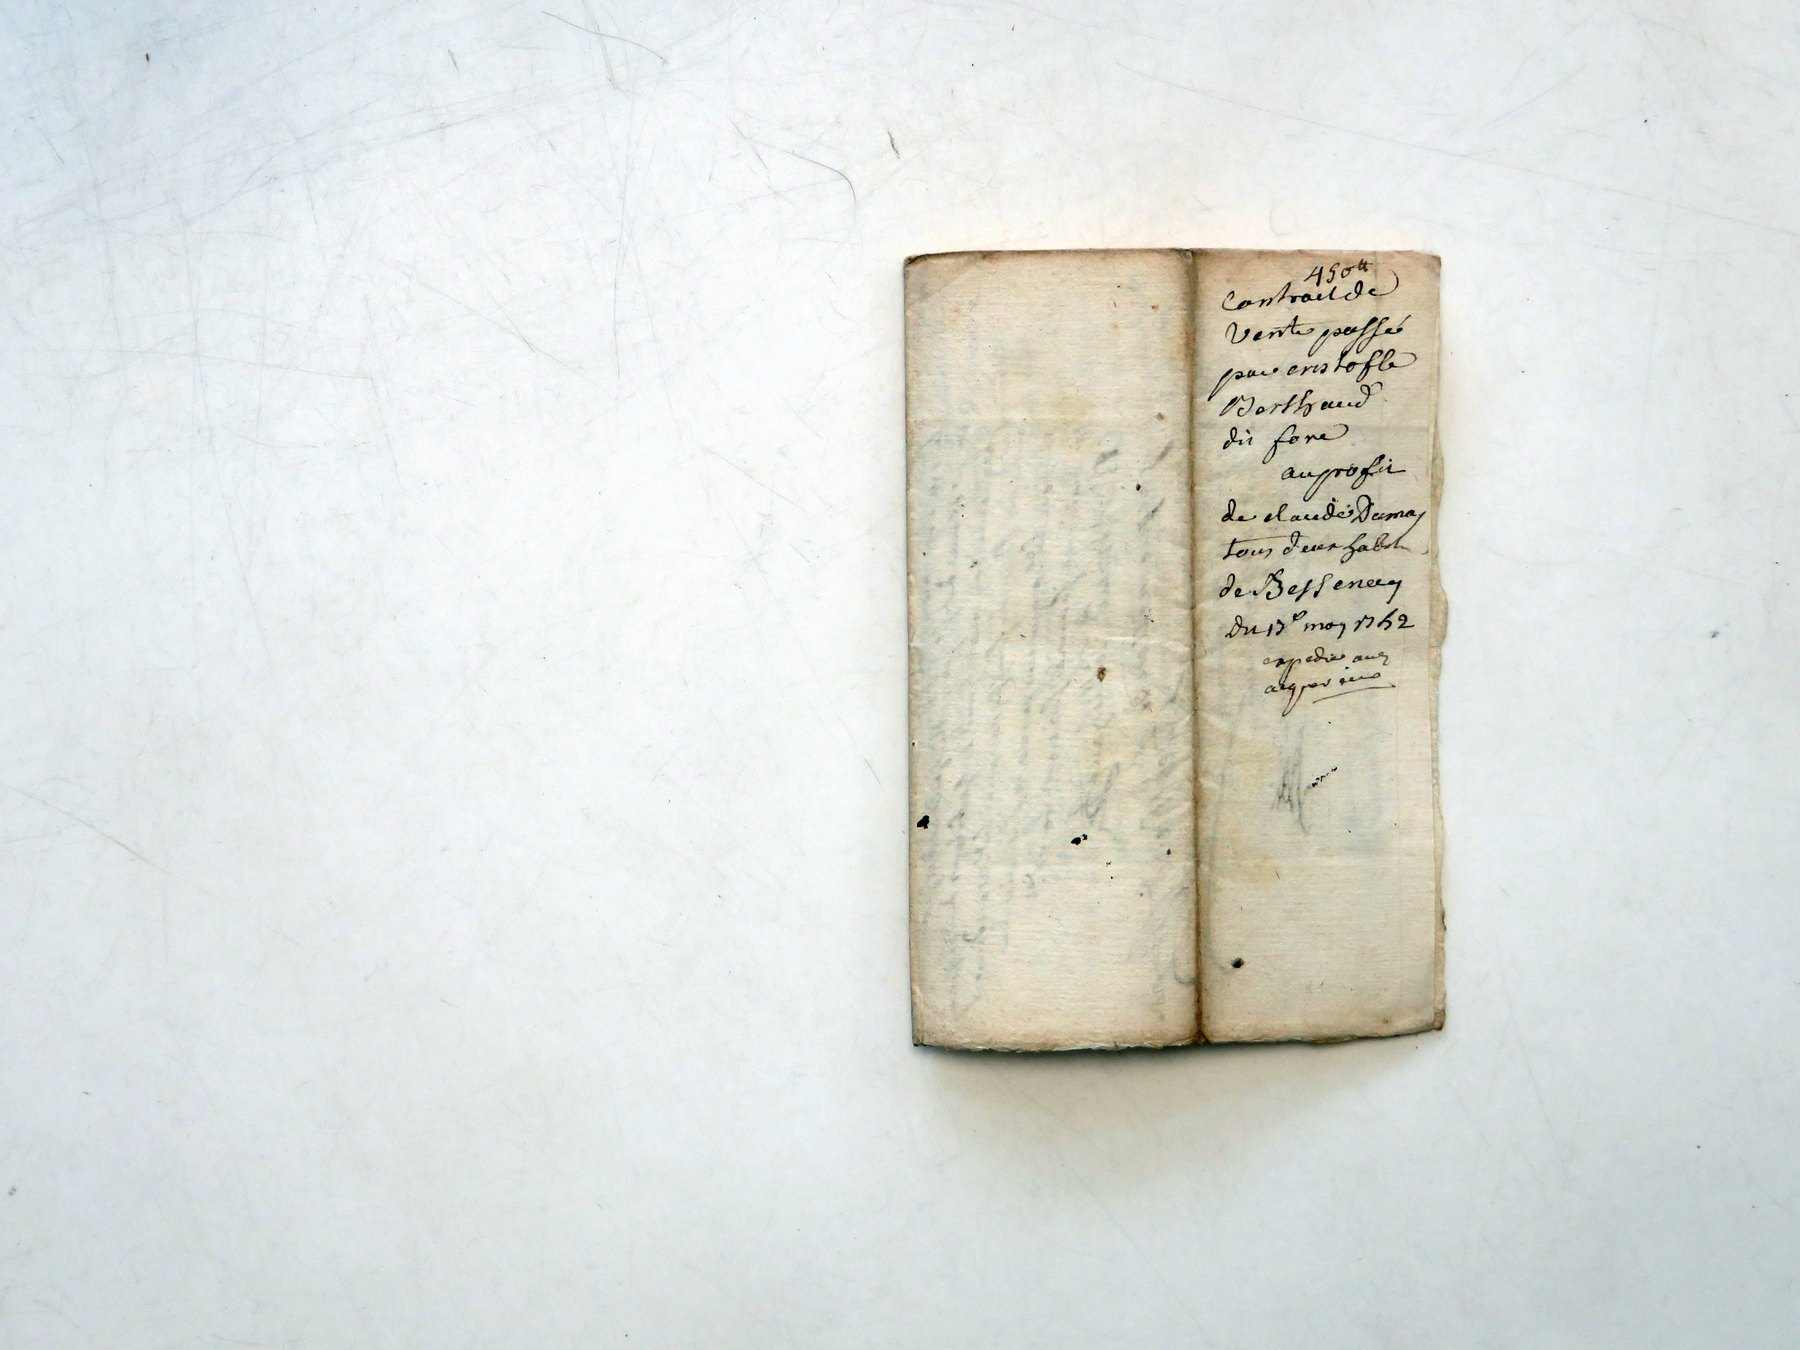 450tt
Contract de
Vente passé
par cristofle
Berthaud
dit fore
au profit
de claude Dumas
tous deux habit
de Bessenay
Du 17e may 1762
expedie aux
acquereur